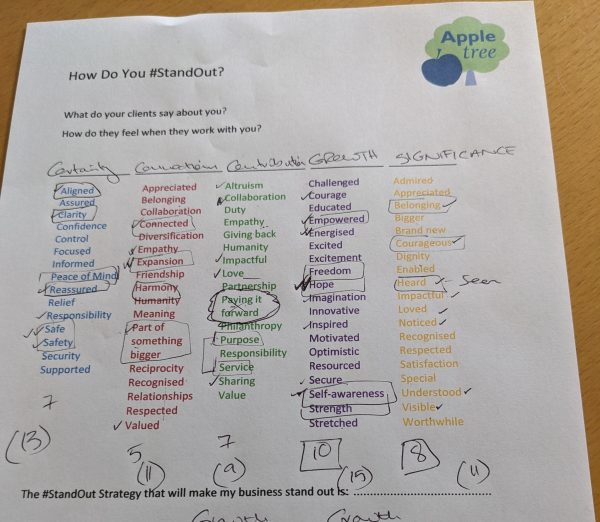 Apple
tree
How Do You #StandOut?
What do your clients say about you?
How do they feel when they work with you?
Certainty
Aligned
Assured
Clarity
Confidence
Control
Focused
Informed
Peace of Mind
Reassured
Relief
Responsibility
Safe
Safety
Security
Supported
7
(13)
Connections
Appreciated
Belonging
Collaboration
Connected
Diversification
Empathy
Expansion
Friendship
Harmony
Humanity
Meaning
Part of
something
bigger
Reciprocity
Recognised
Relationships
Respected
Valued
5
(11)
Contribution
Altruism
Collaboration
Duty
Empathy
Giving back
Humanity
Impactful
Love
Partnership
Paying it
forward
Philanthropy
Purpose
Responsibility
Service
Sharing
Value
7
(9)
GROWTH
Challenged
Courage
Educated
Empowered
Energised
Excited
Excitement
Freedom
Hope
Imagination
Innovative
Inspired
Motivated
Optimistic
Resourced
Secure
Self-awareness
Strength
Stretched
10
(15)
SIGNIFICANCE
Admired
Appreciated
Belonging
Bigger
Brand new
Courageous
Dignity
Enabled
Heard - Seen
Impactful
Loved
Noticed
Recognised
Respected
Satisfaction
Special
Understood
Visible
Worthwhile
8
(11)
The #StandOut Strategy that will make my business stand out is: ........................................
Growth
Growth